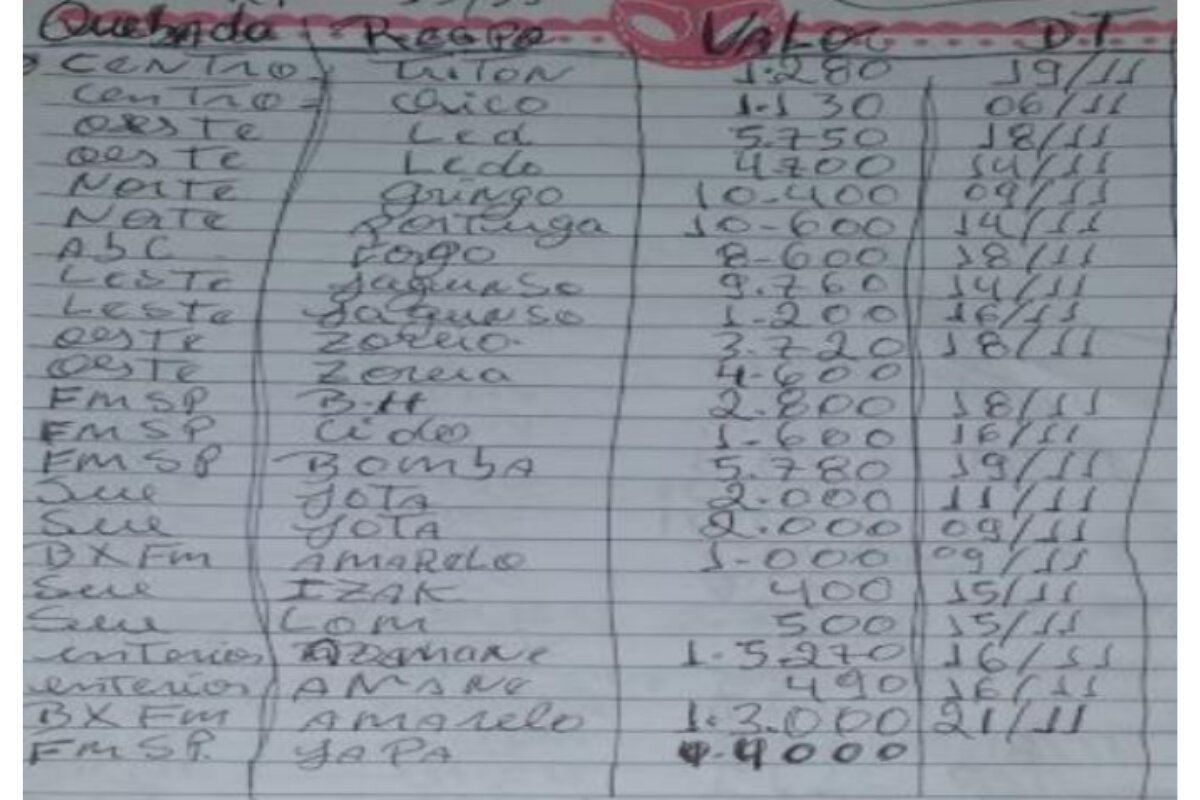 Quebada Respo Valor DT
CENTRO TRITON 1.280 19/11
CENTRO CHICO 1.130 06/11
Oeste Led 5.750 18/11
Oeste Ledo 4700 14/11
Norte Gringo 10.400 09/11
Norte Portuga 10-600 14/11
ABC Fogo 8-600 18/11
Leste 9.760 14/11
Leste 1-200 16/11
Oeste Zoreio 3.720 18/11
Oeste 4-600
FMSP B.H 2.800 18/11
FMSP 1-600 16/11
FMSP BOMbA 5.780 19/11
Sul JOTA 2.000 11/11
Sul JOTA 2.000 09/11
BXFM AMARELO 1-000 09/11
Sul IZAK 400 15/11
Sul LOM 500 15/11
1.5.270 16/11
490 16/11
BXFM AMArelo 1.3.000 21/11
FMSP. JAPA 4000